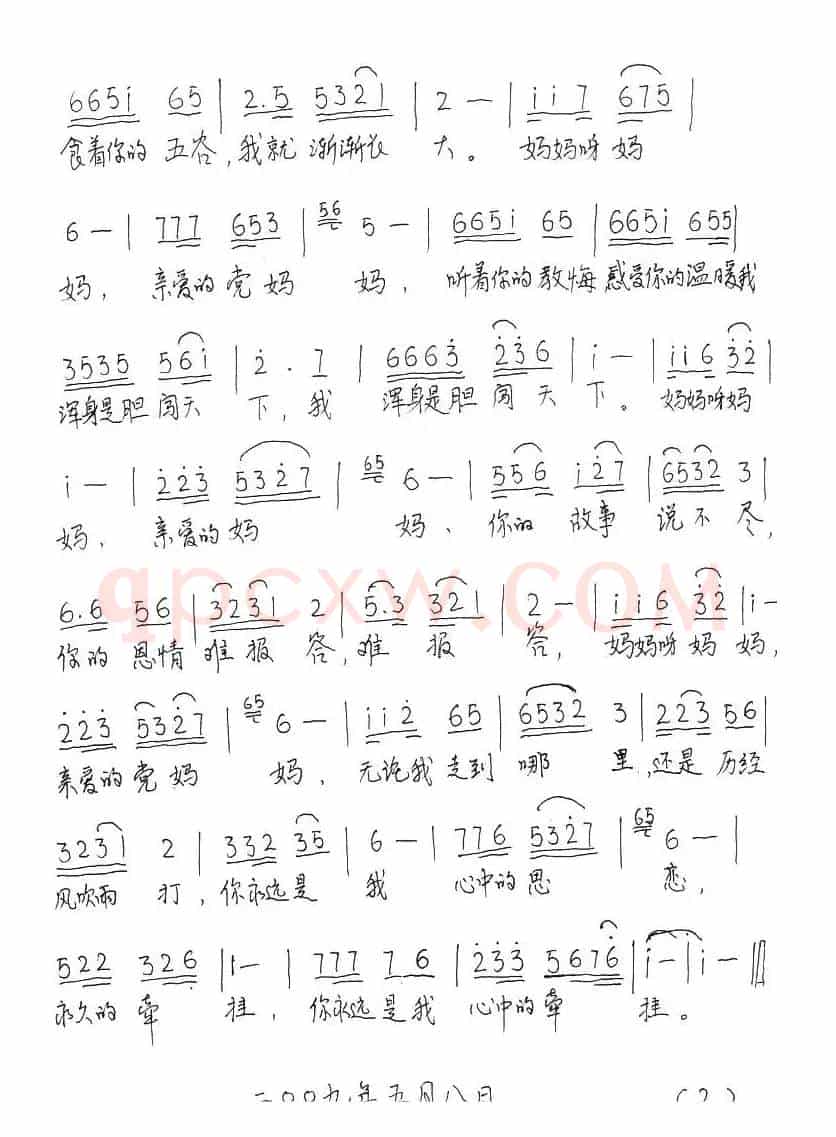 665i 65 | 2.5 5321 | 2 — | i i 7 675 |
食着你的 五谷,我就 渐渐长 大。 妈妈呀 妈
6 — | 777 653 | 56 5 — | 665i 65 | 665i 655 |
妈, 亲爱的 党妈 妈, 听着你的 教悔 感受你的 温暖我
3535 56i | 2 . 7 | 6663 236 | i — | i i 6 32 |
浑身是胆 闯天 下, 我 浑身是胆 闯 天 下。 妈妈呀妈
i — | 223 5327 | 65 6 — | 556 i27 | 6532 3 |
妈、 亲爱的 妈 妈、 你的 故事 说不 尽,
qpcxw.com
6.6 56 | 3231 2 | 5.3 321 | 2 — | i i 6 32 | i —
你的 恩情 难报 答, 难 报 答, 妈妈呀 妈 妈,
223 5327 | 65 6 — | i i 2 65 | 6532 3 | 223 56 |
亲爱的 党 妈 妈, 无论我 走到 哪 里, 还是 历经
3231 2 | 332 35 | 6 — | 776 5327 | 65 6 — |
风吹雨 打, 你永远是 我 心中的 思 恋,
522 326 | 1 — | 777 76 | 233 5676 | i — | i — ‖
永久的 牵 挂, 你永远 是我 心中的 牵 挂。
二00九年五月八日 (2)